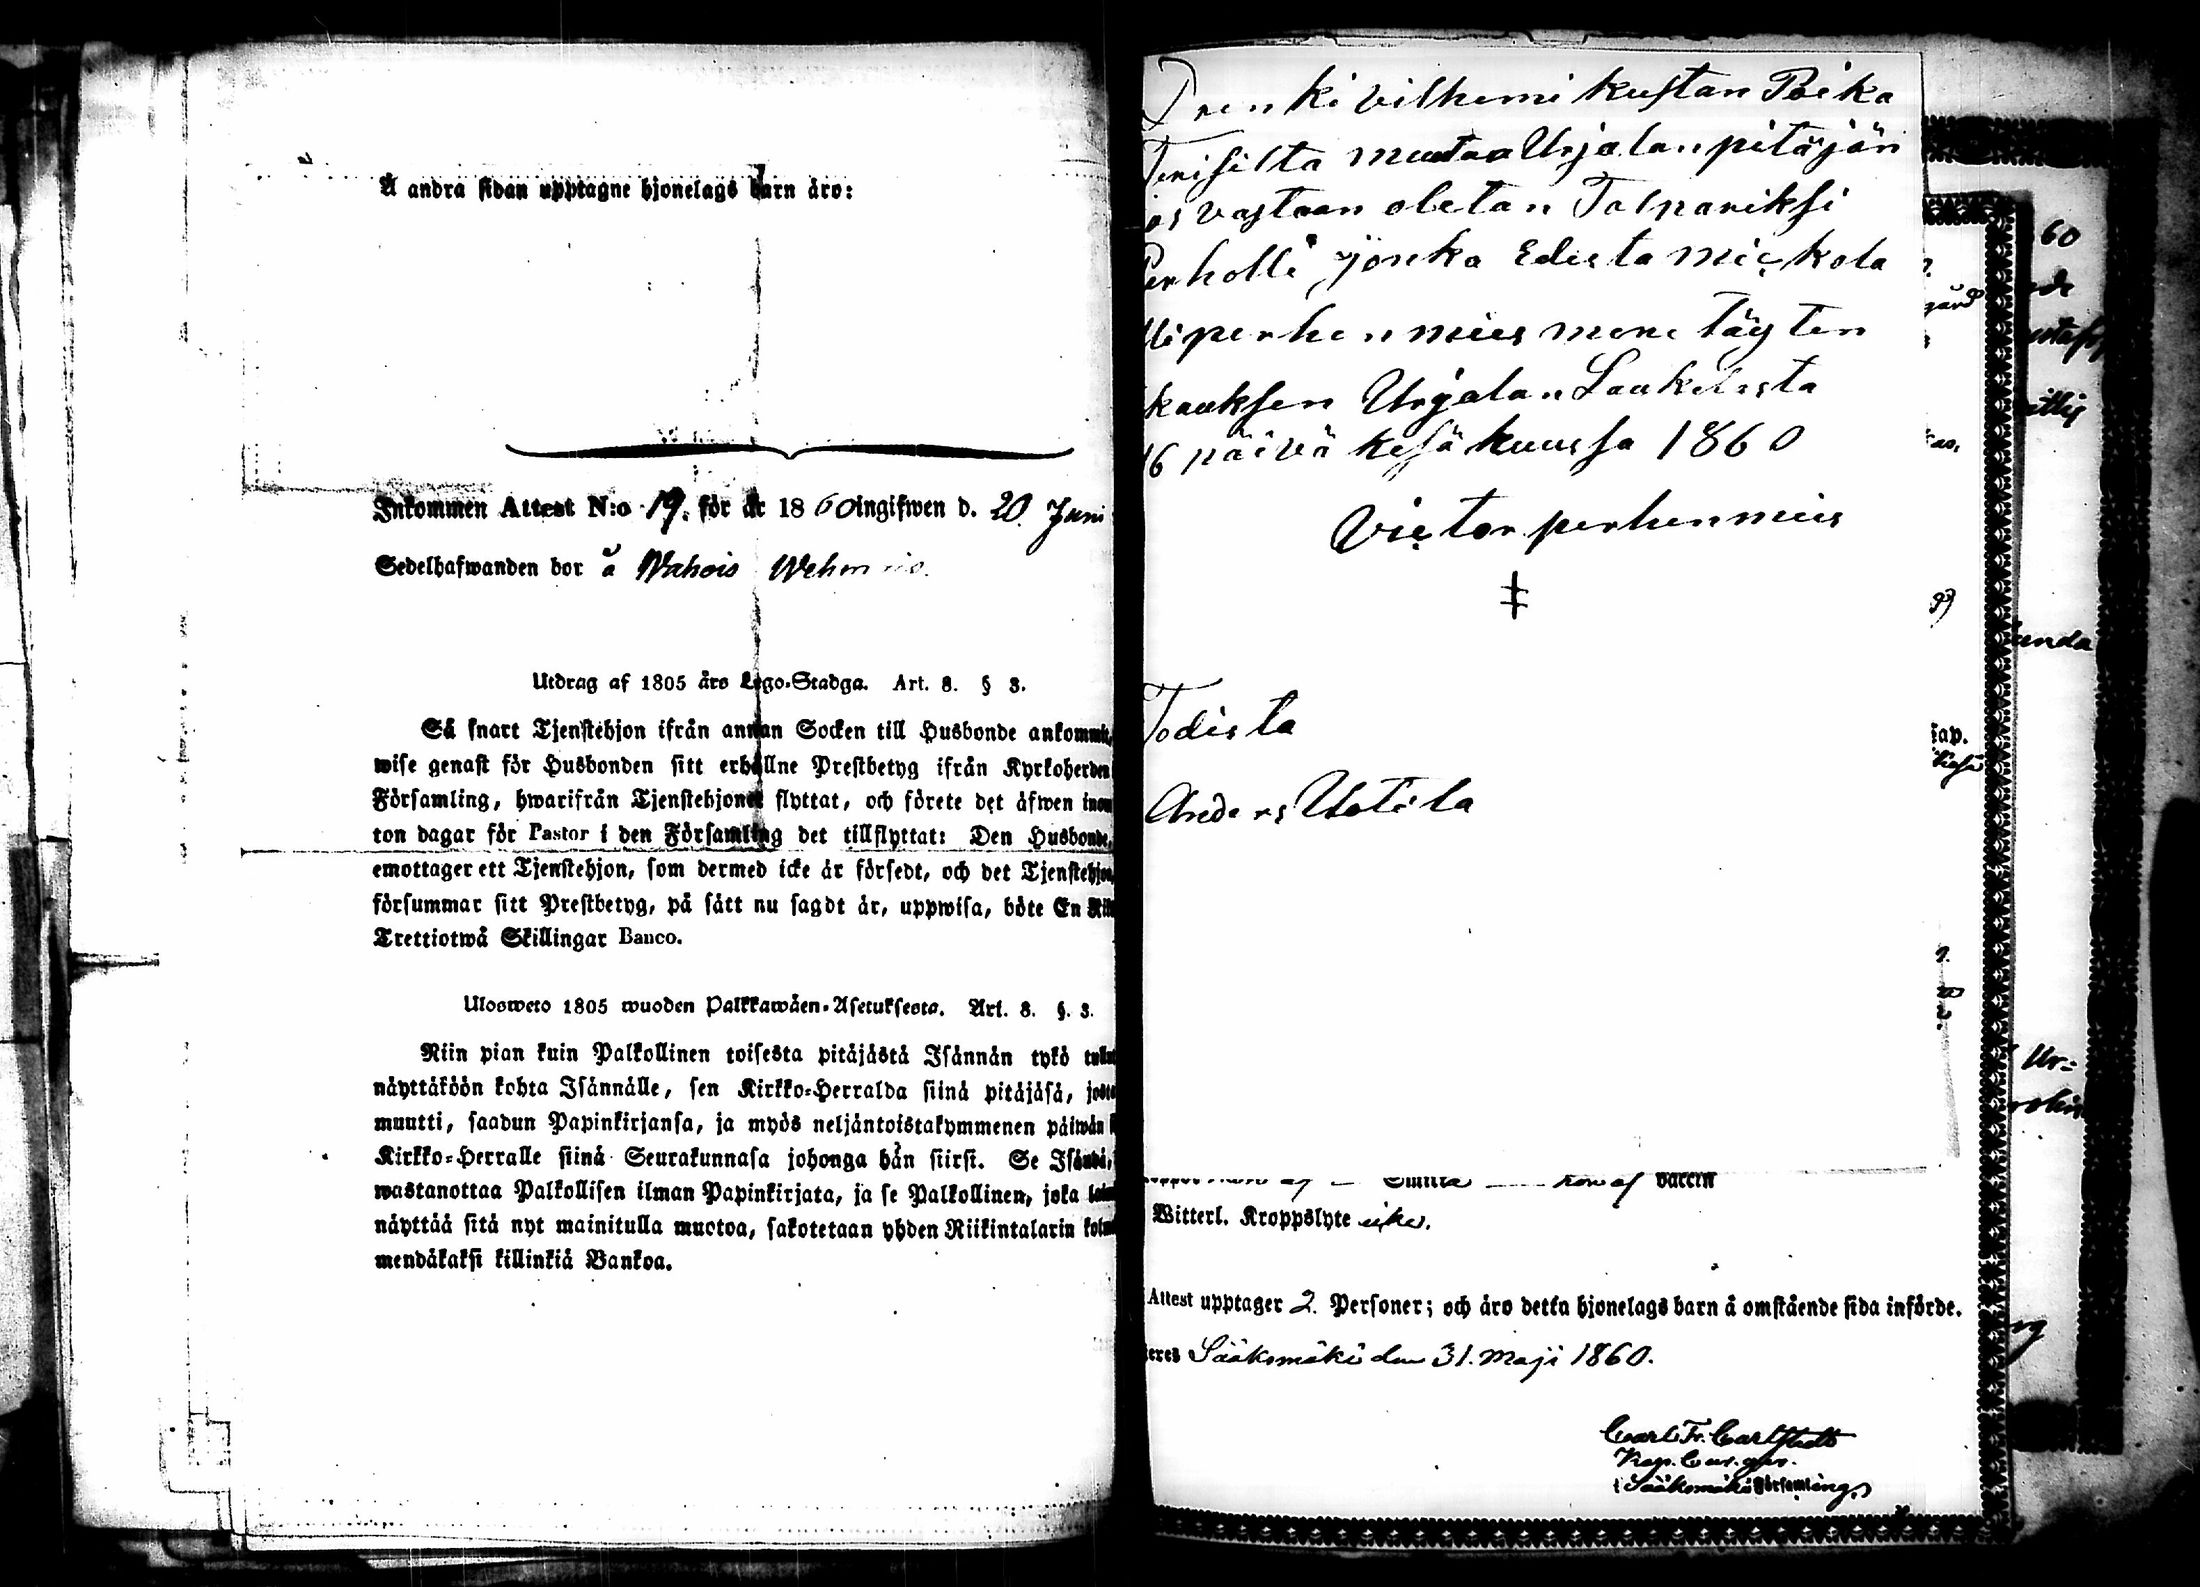 Å andra sidan upptagne hjonelags barn äro:
Inkommen Attest N:o 19. för år 1860 ingifwen d. 20. Juni
Sedelhafwanden bor å Wahois Wehmais.
Utdrag af 1805 års Lego-Stadga. Art. 8. § 3.
Så snart Tjenstehjon ifrån annan Socken till Husbonde ankommit,
wise genast för Husbonden sitt erhållne Prestbetyg ifrån Kyrkoherden
Församling, hwarifrån Tjenstehjonet flyttat, och förete det äfwen inom
ton dagar för Pastor i den Församling det tillflyttat: Den Husbonde,
emottager ett Tjenstehjon, som dermed icke är försedt, och det Tjenstehjon,
försummar sitt Prestbetyg, på sätt nu sagdt är, uppwisa, böte En
Trettiotwå Skillingar Banco.
Ulosweto 1805 wuoden Palkkawäen-Asetuksesta. Art. 8. §. 3.
Niin pian kuin Palkollinen toisesta pitäjästä Isännän tykö
näyttäköön kohta Isännälle, sen Kirkko-Herralda siinä pitäjäsä, josta
muutti, saadun Papinkirjansa, ja myös neljäntoistakymmenen päiwän
Kirkko-Herralle siinä Seurakunnasa johonga hän siirsi. Se Isäntä,
wastanottaa Palkollisen ilman Papinkirjata, ja se Palkollinen, joka
näyttää sitä nyt mainitulla muotoa, sakotetaan yhden Riikintalarin
mendäkaksi killinkiä Bankoa.
Drenki vilhemi kustan Poika
muutaa Urjalan pitäjän
vastaan oletan Talpariksi
jonka Edesta mieskola
perhen mies mene täyten
kauksen Urjalan Laukelasta
16 päivä kesä kuussa 1860
Victor perhenmies
‡
Todista
Anders Uotila
vaccin
Witterl. Kroppslyte icke.
Attest upptager 2. Personer; och äro detta hjonelags barn å omstående sida införde.
Sääksmäki den 31. Maji 1860.
Carl Fr. Carlstedt
Kap.
i Sääksmäki Församling.
60